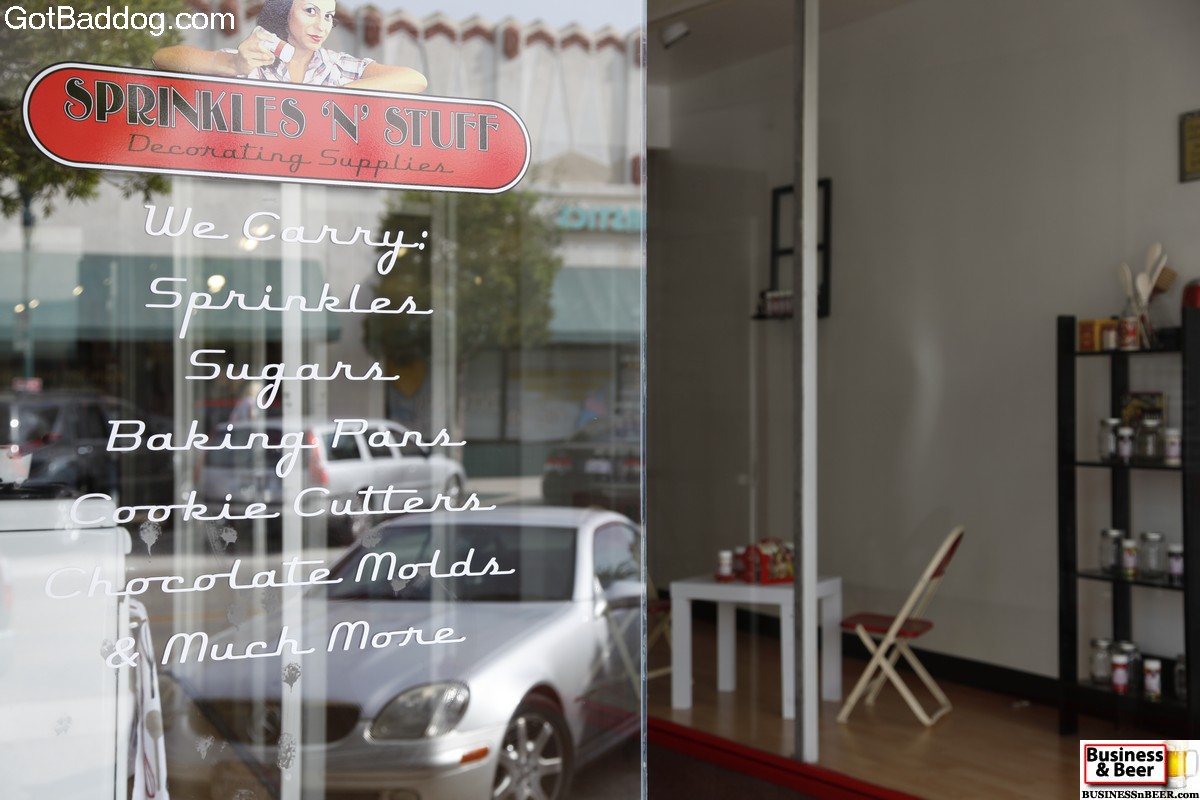 GotBaddog.com
SPRINKLES 'N' STUFF
Decorating Supplies
We Carry:
Sprinkles
Sugars
Baking Pans
Cookie Cutters
Chocolate Molds
& Much More
Business
& Beer
BUSINESSnBEER.com